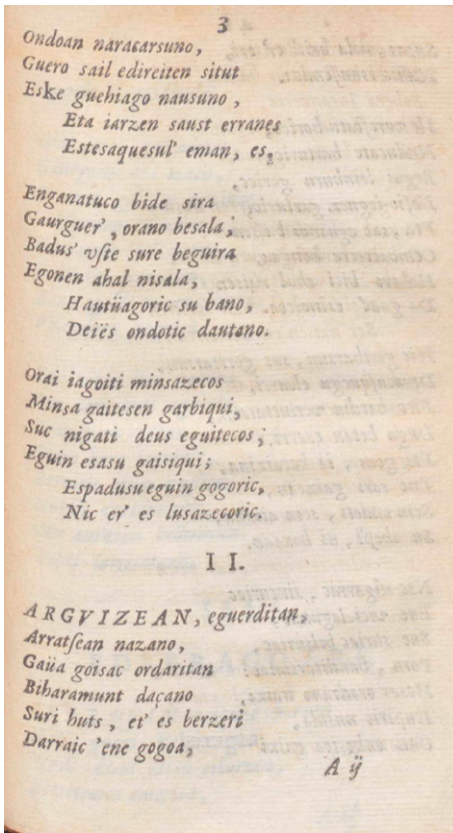 3
Ondoan naracarsuno,
Guero sail edireiten situt
Eske guehiago nausuno,
Eta iarzen saust erranes
Estesaquesul' eman, es,
Enganatuco bide sira
Gaurguer', orano besala;
Badus' vſte sure beguira
Egonen ahal nisala,
Hautüagoric su bano,
Deiës ondotic dautano.
Orai iagoiti minsazecos
Minsa gaitesen garbiqui,
Suc nigati deus eguitecos;
Eguin esasu gaisiqui;
Espadusu eguin gogoric,
Nic er' es lusazecoric.
II.
ARGVIZEAN, eguerditan,
Arratſean nazano,
Gaüa goisac ordaritan
Biharamunt daçano
Suri huts, et' es berzeri
Darraic 'ene gogoa,
A ÿ